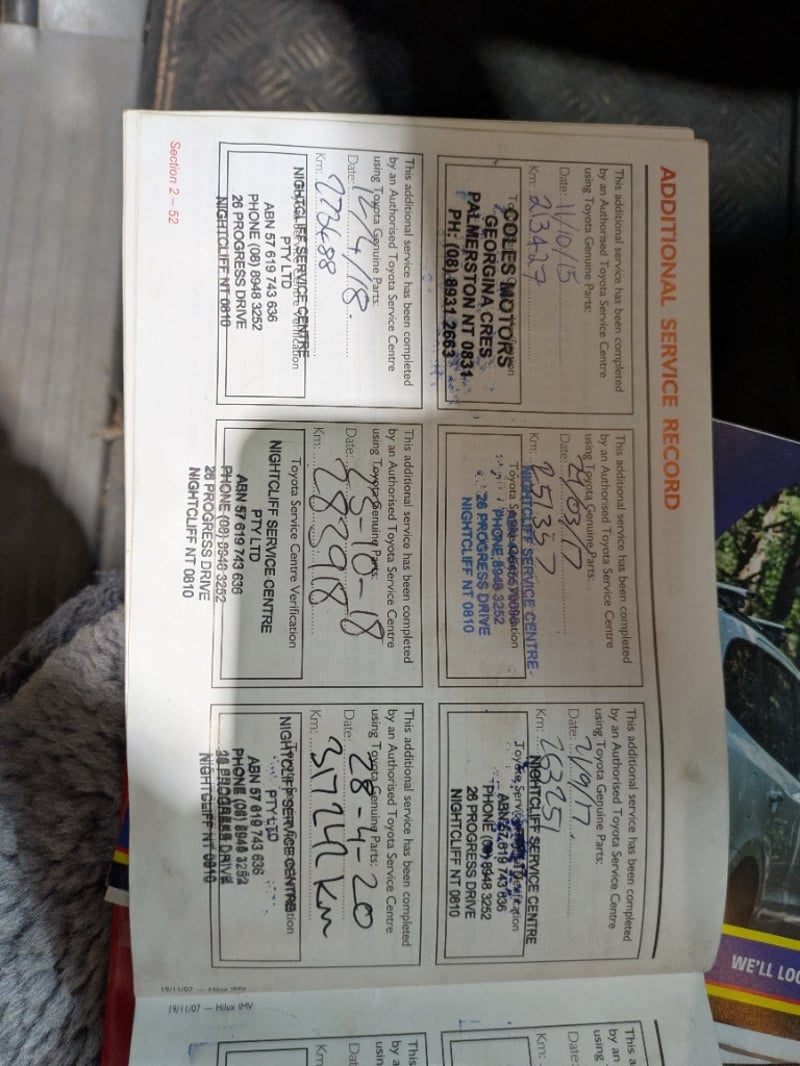 ADDITIONAL SERVICE RECORD
This additional service has been completed
by an Authorised Toyota Service Centre
using Toyota Genuine Parts:
Date: 11/10/15
Km: 213427
COLES MOTORS
GEORGINA CRES
PALMERSTON NT 0831
PH: (08) 8931 2663
This additional service has been completed
by an Authorised Toyota Service Centre
using Toyota Genuine Parts:
Date: 29/03/17
Km: 251357
NIGHTCLIFF SERVICE CENTRE
PHONE 8948 3252
26 PROGRESS DRIVE
NIGHTCLIFF NT 0810
This additional service has been completed
by an Authorised Toyota Service Centre
using Toyota Genuine Parts:
Date: 21/9/17
Km: 263251
NIGHTCLIFF SERVICE CENTRE
ABN 57 619 743 636
PHONE (08) 8948 3252
26 PROGRESS DRIVE
NIGHTCLIFF NT 0810
This additional service has been completed
by an Authorised Toyota Service Centre
using Toyota Genuine Parts:
Date: 12/4/18
Km: 273488
NIGHTCLIFF SERVICE CENTRE
PTY LTD
ABN 57 619 743 636
PHONE (08) 8948 3252
26 PROGRESS DRIVE
NIGHTCLIFF NT 0810
This additional service has been completed
by an Authorised Toyota Service Centre
using Toyota Genuine Parts:
Date: 23-10-18
Km: 282918
Toyota Service Centre Verification
NIGHTCLIFF SERVICE CENTRE
PTY LTD
ABN 57 619 743 636
PHONE (08) 8948 3252
26 PROGRESS DRIVE
NIGHTCLIFF NT 0810
This additional service has been completed
by an Authorised Toyota Service Centre
using Toyota Genuine Parts:
Date: 28-4-20
Km: 317242 km
NIGHTCLIFF SERVICE CENTRE
PTY LTD
ABN 57 619 743 636
PHONE (08) 8948 3252
26 PROGRESS DRIVE
NIGHTCLIFF NT 0810
Section 2 – 52
19/11/07 — Hilux IMV
19/11/07 — Hilux IMV
This a
by an
using
Date:
Km:
This
by a
usin
Dat
Km
WE'LL LOO